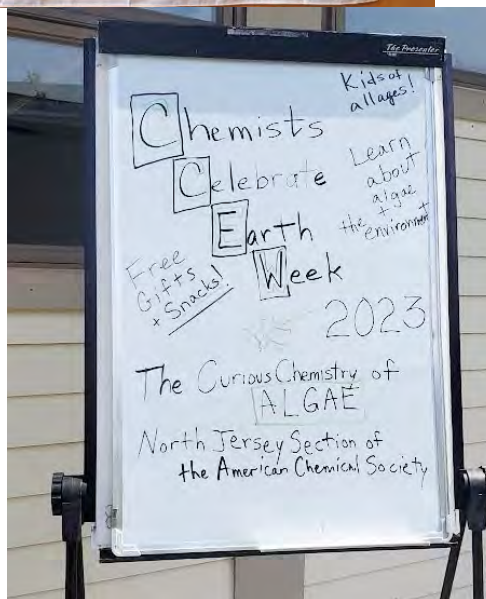 The Presenter
Kids of
all ages!
Chemists
Celebrate
Earth
Week
Learn
about
algae
+
the environment
Free
Gifts
+ Snacks!
2023
The Curious Chemistry of
ALGAE
North Jersey Section of
the American Chemical Society